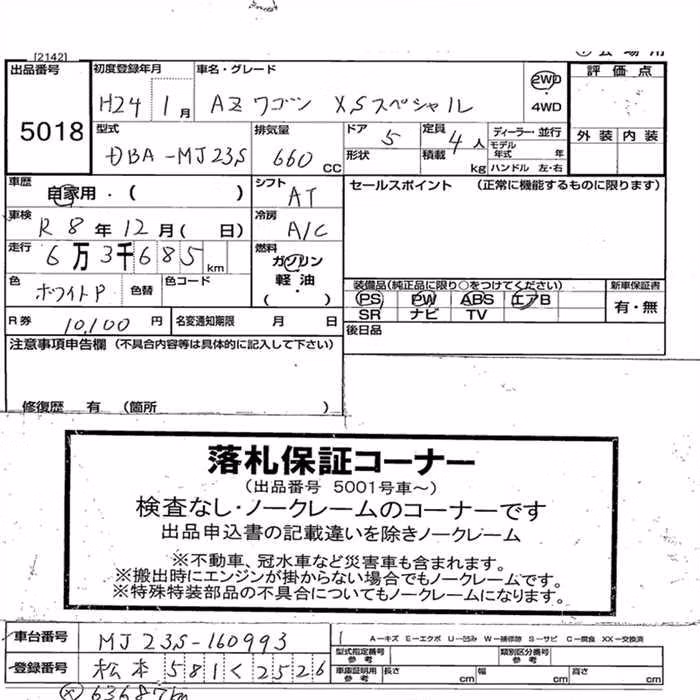 [2142]
出品番号 5018
初度登録年月 H24 1月
車名・グレード AZワゴン XSスペシャル
2WD
4WD
評価点
外装 内装
型式 DBA-MJ23S
排気量 660 CC
ドア 5
形状
定員 4人
積載 kg
ディーラー・並行
モデル年式 年
ハンドル 左・右
車歴 自家用・( )
シフト AT
セールスポイント (正常に機能するものに限ります)
車検 R8年12月( 日)
冷房 A/C
走行 6万3千685km
燃料 ガソリン
軽油
( )
色 ホワイトP 色替 色コード
装備品(純正品に限り○をつけてください)
PS PW ABS エアB
SR ナビ TV
新車保証書
有・無
R券 10,100円 名変通知期限 月 日
後日品
注意事項申告欄 (不具合内容等は具体的に記入して下さい)
修復歴 有 (箇所 )
落札保証コーナー
(出品番号 5001号車~)
検査なし・ノークレームのコーナーです
出品申込書の記載違いを除きノークレーム
※不動車、冠水車など災害車も含まれます。
※搬出時にエンジンが掛からない場合でもノークレームです。
※特殊特装部品の不具合についてもノークレームになります。
車台番号 MJ23S-160993
A-キズ E-エクボ U-凹み W-補修跡 S-サビ C-腐食 XX-交換済
型式指定番号 参考
類別区分番号 参考
登録番号 松本 581 く 2526
車庫証明用 参考 長さ cm 幅 cm 高さ cm
63687km